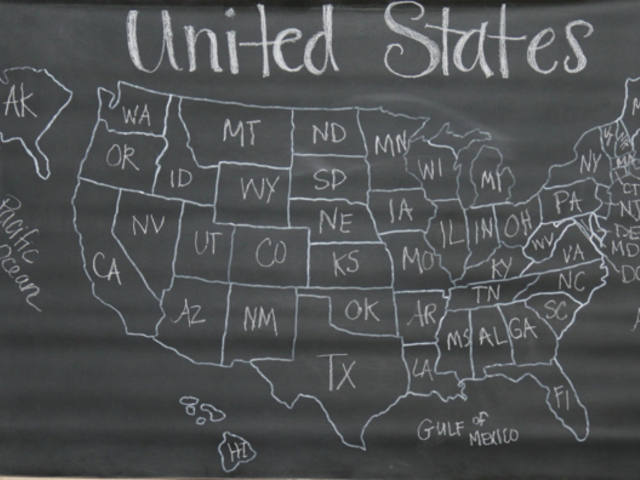 United States
AK
WA
MT
ND
MN
OR
ID
WY
SD
WI
MI
NY
PA
NV
UT
CO
NE
IA
IL
IN
OH
WV
VA
CA
KS
MO
KY
AZ
NM
OK
AR
TN
NC
SC
MS
AL
GA
TX
LA
FI
HI
Pacific
Ocean
GULF of
MEXICO
DE
MD